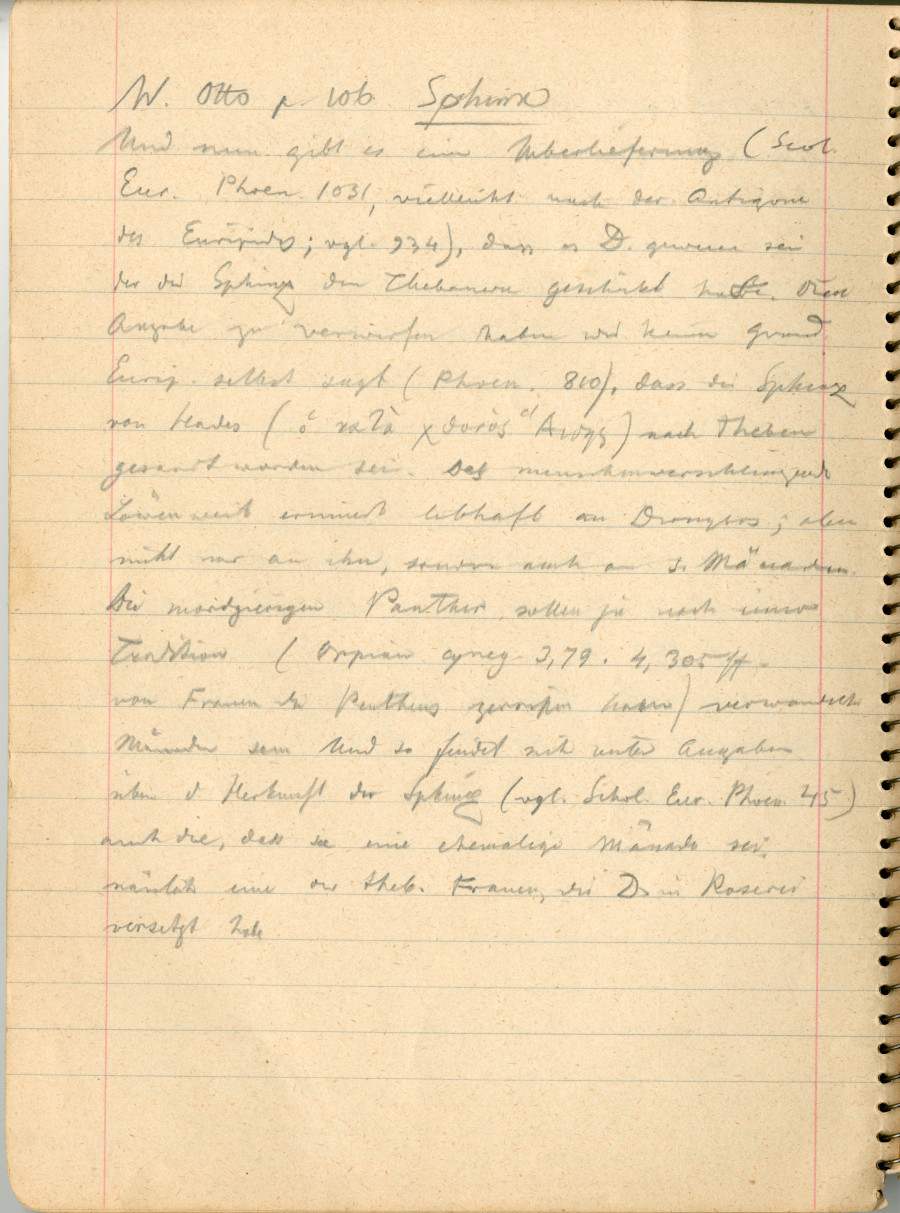 W. Otto p. 106 Sphinx
Und nun gibt es eine Ueberlieferung (Scol.
Eur. Phoen. 1031, vielleicht nach der Antigone
des Euripides; vgl. 934), dass es D. gewesen sei
der die Sphinx den Thebanern geschickt habe. Diese
Angabe zu verwerfen haben wir keinen Grund.
Eurip. selbst sagt (Phoen. 810), dass die Sphinx
von Hades (ὁ κατὰ χθονὸς Ἅιδης) nach Theben
gesandt worden sei. Das menschenverschlingende
Löwenweib erinnert lebhaft an Dionysos; aber
nicht nur an ihn, sondern auch an s. Mänaden.
Die mordgierigen Panther sollen ja nach einer
Tradition (Oppian cyneg. 3,79. 4,305 ff.
von Frauen die Pentheus zerrissen haben) verwandelte
Mänaden sein Und so findet sich unter Angaben
über d Herkunft der Sphinx (vgl. Schol. Eur. Phoen. 45)
auch die, dass sie eine ehemalige Mänade sei,
nämlich eine der theb. Frauen, die D. in Raserei
versetzt habe